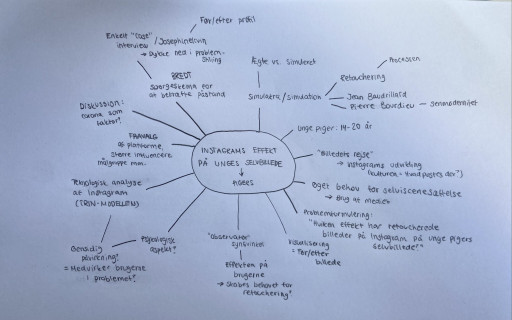 For/efter profil
Enkelt "case"
interview / Josephine
→ Dykke ned i problem-
stilling
BREDT
spørgeskema for
at bekræfte påstand
Diskussion:
corona som
faktor?
FRAVALG
af platforme,
større influencere
målgruppe mm.
Teknologisk analyse
af Instagram
(TRIN-MODELLEN)
Gensidig
påvirkning?
= Medvirker brugerne
i problemet?
Psykologiske
aspekt?
INSTAGRAMS EFFEKT
PÅ UNGES SELVBILLEDE
↓
Ægte vs. simuleret
Simulacra/simulation
Processen
Retouchering
Jean Baudrillard
Pierre Bourdieu – senmodernitet
Unge piger: 14-20 år
"Billedets rejse"
→ Instagrams udvikling
Øget behov for selviscenesættelse
→ Brug af mediet
Problemformulering:
"Hvilken effekt har retoucherede
billeder på Instagram på unge pigers
selvbillede?"
Visualisering
= Før/efter
billede
"Observatør"
synsvinkel
Effekten på
brugerne
→ Skabes behovet for
retouchering"